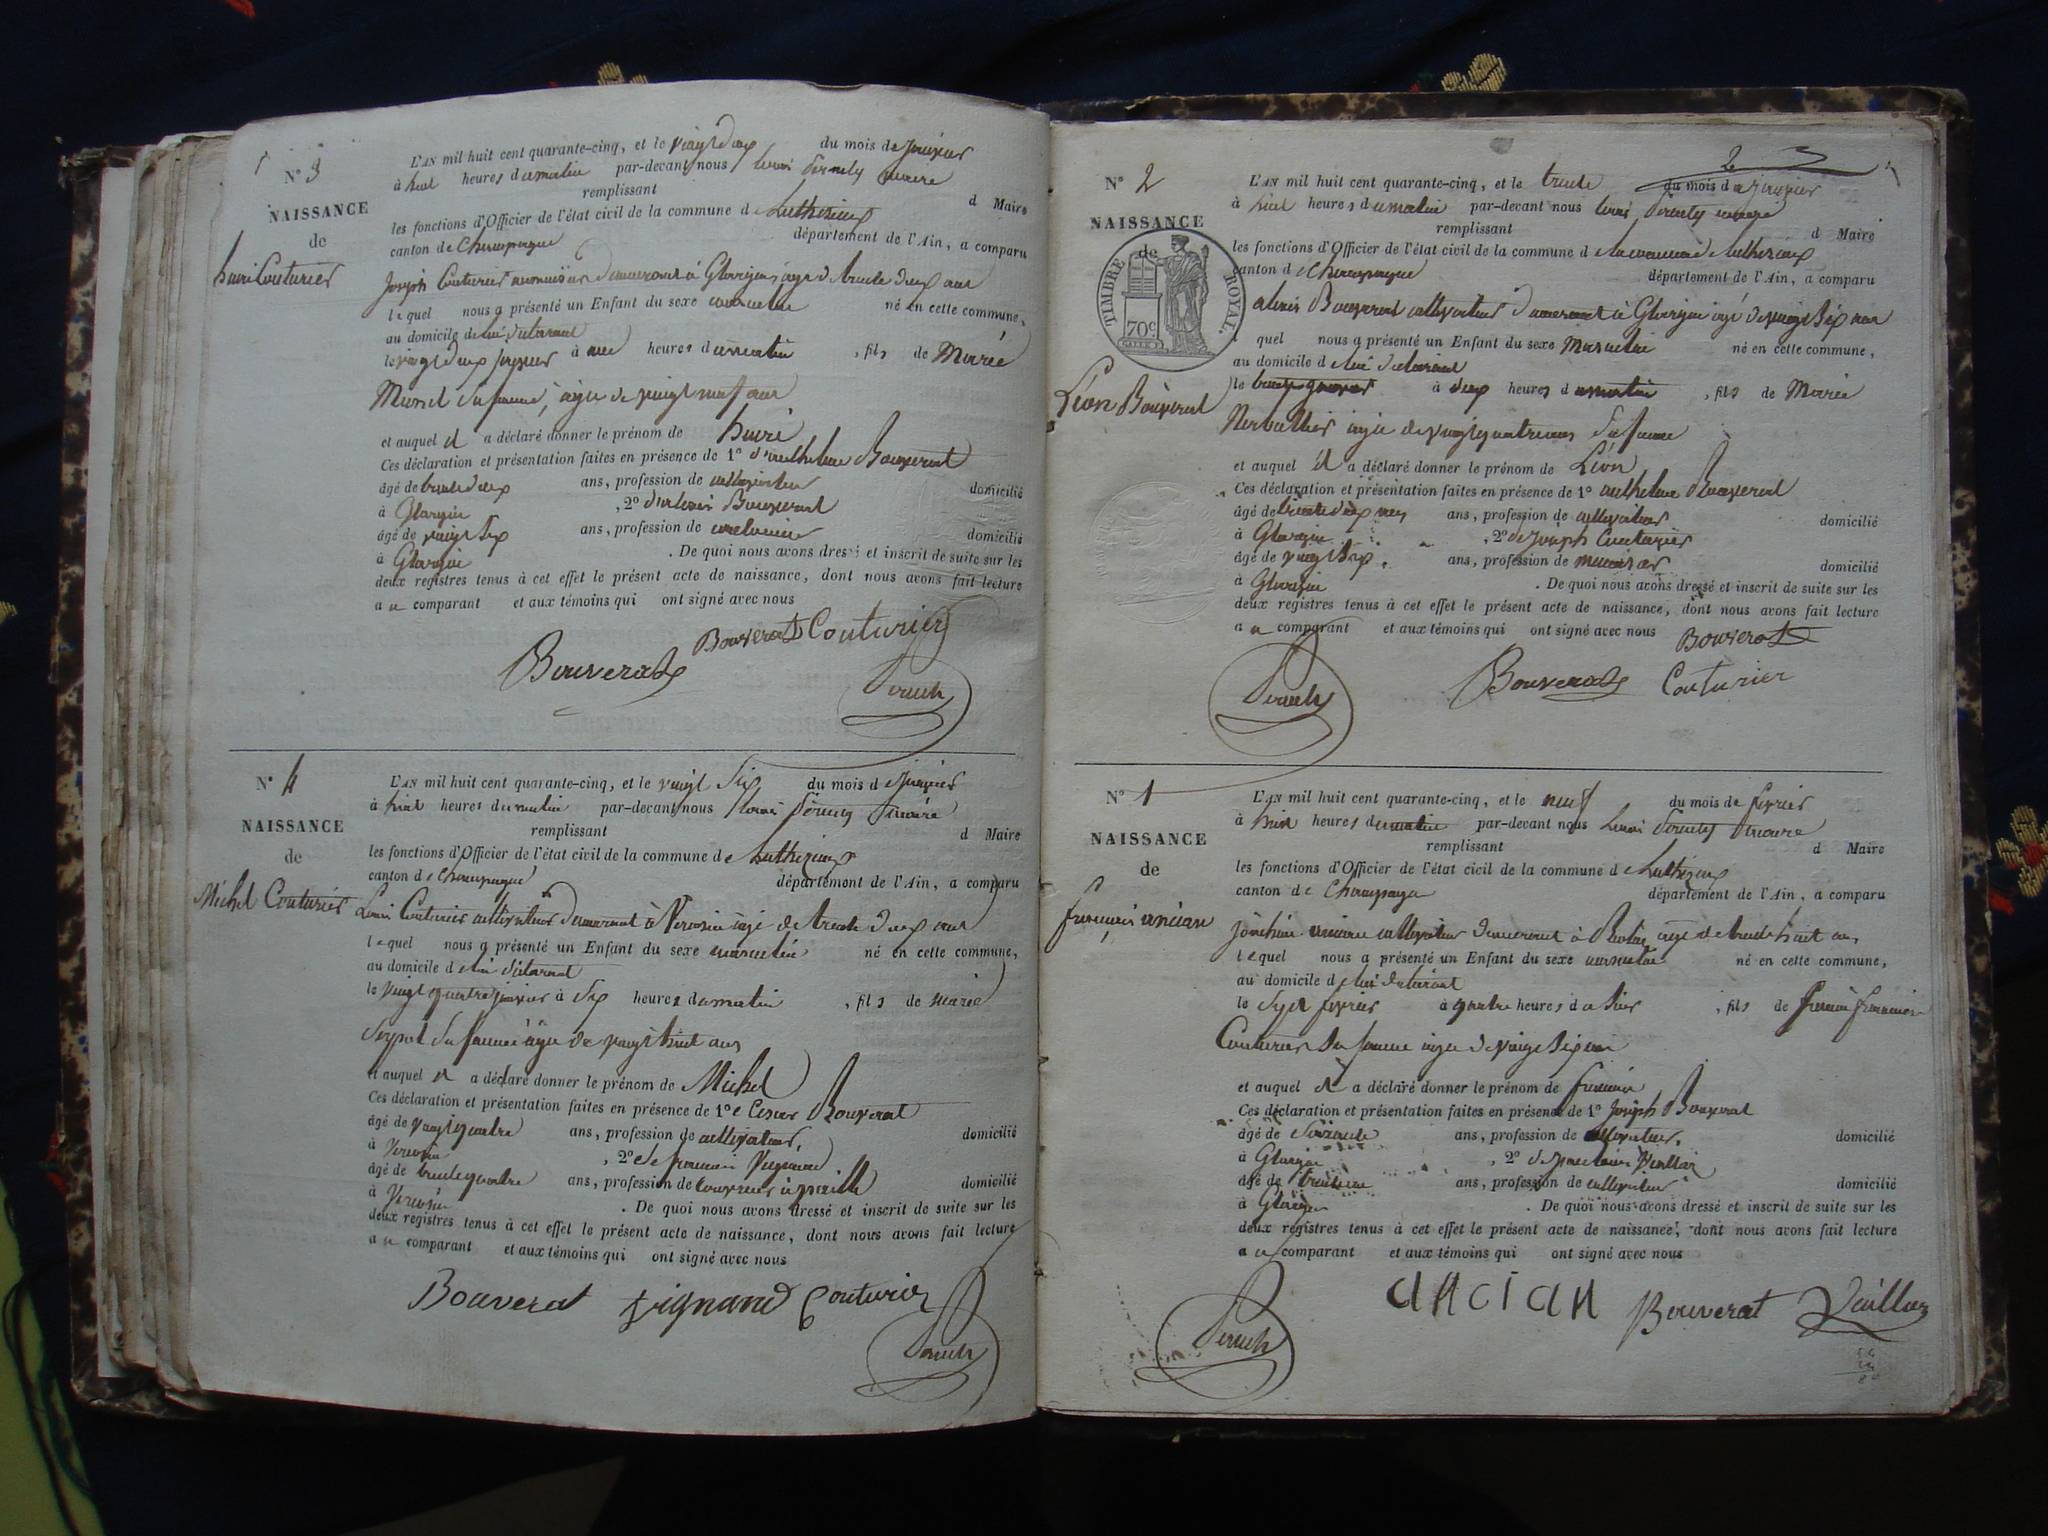 N° 3
NAISSANCE
de
henri Couturier
L'AN mil huit cent quarante-cinq, et le vingt deux du mois de janvier
à huit heures du matin par-devant nous Louis maire
remplissant d Maire
les fonctions d'Officier de l'état civil de la commune de Luthezieux
canton de Champagne département de l'Ain, a comparu
Joseph Couturier demeurant à Glargin, age de trente deux ans
lequel nous a présenté un Enfant du sexe masculin né en cette commune,
au domicile de lui déclarant
le vingt deux janvier à une heures du matin, fils de Marie
sa femme, agée de vingt neuf ans
et auquel il a déclaré donner le prénom de henri
Ces déclaration et présentation faites en présence de 1° d'anthelme Bouverat
âgé de trente deux ans, profession de cultivateur domicilié
à Glargin, 2° d'alexis Bouverat
âgé de vingt six ans, profession de domicilié
à Glargin. De quoi nous avons dressé et inscrit de suite sur les
deux registres tenus à cet effet le présent acte de naissance, dont nous avons fait lecture
a u comparant et aux témoins qui ont signé avec nous
Bouverat Couturier
Bouverat
N° 4
NAISSANCE
de
Michel Couturier
L'AN mil huit cent quarante-cinq, et le vingt six du mois de janvier
à huit heures du matin par-devant nous Louis maire
remplissant d Maire
les fonctions d'Officier de l'état civil de la commune de Luthezieux
canton de Champagne département de l'Ain, a comparu
Louis Couturier cultivateur demeurant à agé de trente deux ans
lequel nous a présenté un Enfant du sexe masculin né en cette commune,
au domicile de lui déclarant
le vingt quatre janvier à six heures du matin, fils de marie
sa femme agée de vingt huit ans
et auquel il a déclaré donner le prénom de Michel
Ces déclaration et présentation faites en présence de 1° Bouverat
âgé de vingt quatre ans, profession de cultivateur, domicilié
à, 2° de Vignand
âgé de trente quatre ans, profession de couvreur à paille domicilié
à. De quoi nous avons dressé et inscrit de suite sur les
deux registres tenus à cet effet le présent acte de naissance, dont nous avons fait lecture
a u comparant et aux témoins qui ont signé avec nous
Bouverat Vignand Couturier
2
N° 2
NAISSANCE
de
TIMBRE ROYAL.
70c
Léon Bouverat
L'AN mil huit cent quarante-cinq, et le trente du mois de janvier
à huit heures du matin par-devant nous Louis
remplissant d Maire
les fonctions d'Officier de l'état civil de la commune d Luthezieux
canton de Champagne département de l'Ain, a comparu
alexis Bouverat cultivateur demeurant à Glargin agé de vingt six ans
quel nous a présenté un Enfant du sexe Masculin né en cette commune,
au domicile de lui déclarant
le janvier à deux heures du matin, fils de Marie
agée de vingt quatre ans sa femme
et auquel il a déclaré donner le prénom de Léon
Ces déclaration et présentation faites en présence de 1° anthelme Bouverat
âgé de trente deux ans, profession de cultivateur domicilié
à Glargin, 2° de joseph Couturier
âgé de ans, profession de domicilié
à Glargin. De quoi nous avons dressé et inscrit de suite sur les
deux registres tenus à cet effet le présent acte de naissance, dont nous avons fait lecture
a u comparant et aux témoins qui ont signé avec nous Bouverat
Bouverat Couturier
N° 1
NAISSANCE
de
françois ancian
L'AN mil huit cent quarante-cinq, et le neuf du mois de fevrier
à huit heures du matin par-devant nous Louis maire
remplissant d Maire
les fonctions d'Officier de l'état civil de la commune de Luthezieux
canton de Champagne département de l'Ain, a comparu
ancian cultivateur demeurant à agé de trente huit ans
lequel nous a présenté un Enfant du sexe masculin né en cette commune,
au domicile de lui déclarant
le sept fevrier à quatre heures du soir, fils de
Couturier sa femme agée de vingt six ans
et auquel il a déclaré donner le prénom de françois
Ces déclaration et présentation faites en présence de 1° joseph Bouverat
âgé de soixante ans, profession de cultivateur. domicilié
à Glargin, 2° de
âgé de ans, profession de cultivateur domicilié
à Glargin. De quoi nous avons dressé et inscrit de suite sur les
deux registres tenus à cet effet le présent acte de naissance, dont nous avons fait lecture
a u comparant et aux témoins qui ont signé avec nous
ancian Bouverat